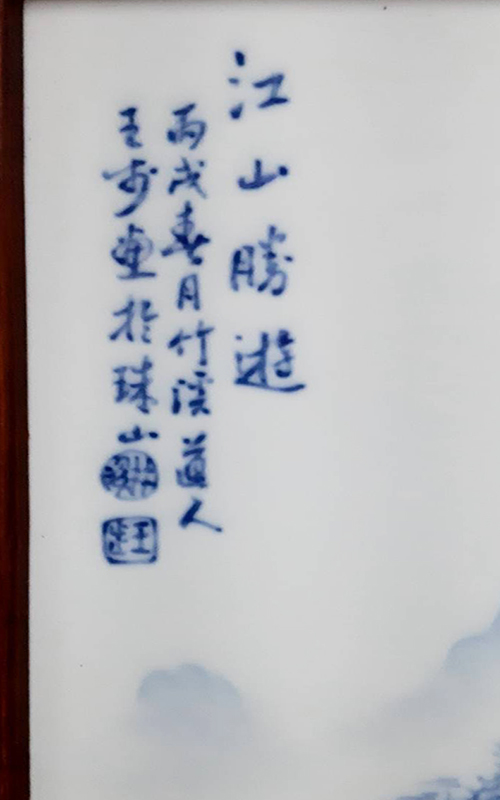 江山勝遊
丙戌春月竹溪道人
王步畫於珠山
王步